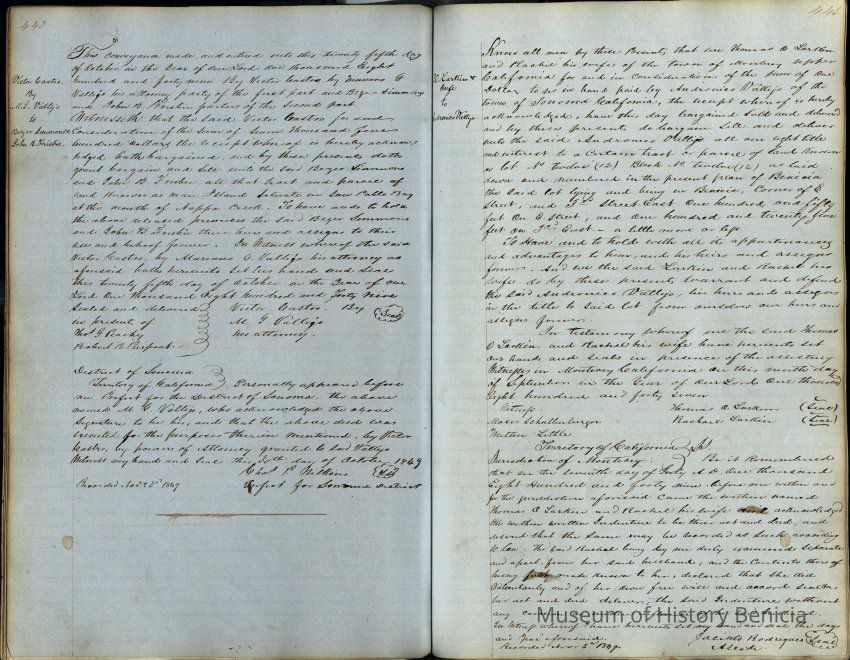 443
Victor Castro.
By
M. G. Vallejo
to
Bezer Simmons &
John B. Frisbie.
This conveyance made and entered into this twenty fifth day
of October in the Year of our Lord One thousand Eight
hundred and forty nine By Victor Castro by Mariano G
Vallejo his attorney party of the first part and Bezer Simmons
and John B Frisbie parties of the second part
Witnesseth that the said Victor Castro for and
Consideration of the Sum of Seven Thousand five
hundred dollars the receipt whereof is hereby acknow-
ledged hath bargained, and by these presents doth
grant bargain and Sell unto the said Bezer Simmons
and John B Frisbie all that tract and parcel of
land known as Mare Island Situate in San Pablo Bay
at the mouth of Nappa Creek. To have and to hold
the above released premises the said Bezer Simmons
and John B Frisbie their heirs and assigns to their
use and behoof forever. In Witness whereof the said
Victor Castro, by Mariano G. Vallejo his attorney as
aforesaid hath hereunto set his hand and Seal
this twenty fifth day of October in the Year of our
Lord One Thousand Eight Hundred and forty Nine
Sealed and delivered Victor Castro. By
in presents of M G Vallejo (Seal)
Thos. G Peachy his attorney.
Robert R Pierpont.
District of Sonoma
Territory of California Personally appeared before
me Prefect for the District of Sonoma. the above
named M. G Vallejo, who acknowledged the above
Signature to be his, and that the above deed was
executed for the purposes therein mentioned, by Victor
Castro, by power of Attorney granted to said Vallejo
Witness my hand and Seal this 25th day of October, 1849
Chas. P. Wilkins (Seal)
Prefect for Sonoma District
Recorded Nov. 5th 1849
443
T. O. Larkin &
wife
to
Andronico Vallejo
Know all men by these Presents, that we Thomas O Larkin
and Rachel his wife of the town of Monterey upper
California for and in Consideration of the sum of One
Dollar to us in hand paid by Andronico Vallejo of the
town of Sonoma California, the receipt whereof is hereby
acknowledged, have this day bargained Sold and delivered
and by these presents do bargain Sell and deliver
unto the said Andronico Vallejo all our right title
and interest to a Certain tract or parcel of land known
as Lot No. twelve (12) Block No. twelve (12) as laid
down and numbered in the present plan of Benicia
the said lot lying and being in Benicia, Corner of E
Street, and 3rd Street East One hundred, and fifty
feet On E Street, and One hundred and twenty five
feet on 3rd East – a little more or less
To Have and to hold with all its appurtenances
and advantages to him, and his heirs and assigns
forever. And we the said Larkin and Rachel his
wife do by these presents warrant and defend
the said Andronico Vallejo, his heirs and assigns
in the title to said lot from ourselves our heirs and
assigns forever.
In testimony whereof we the said Thomas
O Larkin and Rachel his wife have hereunto set
our hands and Seals in presence of the attesting
Witnesses in Monterey California on this ninth day
of September in the Year of Our Lord One thousand
Eight hundred and forty Seven
Witness Thomas O Larkin (Seal)
Moses Schallenberger Rachael Larkin (Seal)
Milton Little
Territory of California
Jurisdiction of Monterey Be it remembered
that on the seventh day of July A D One thousand
Eight Hundred and forty nine before me within and
for the jurisdiction aforesaid Came the within named
Thomas O Larkin and Rachel his wife and acknowledged
the within written Indenture to be their act and deed, and
desired that the same may be recorded as Such according
to law. The said Rachel being by me duly examined separate
and apart from her said husband, and the Contents thereof
being made known to her, declared that she did
Voluntarily and of her own free will and accord seal as
her act and deed deliver, the said Indenture without
any
In Witness whereof I have hereunto set my hand and seal the day
and Year aforesaid. Jacinto Rodriguez (Seal)
Recorded Nov. 5th 1849. Alcade.
Museum of History Benicia